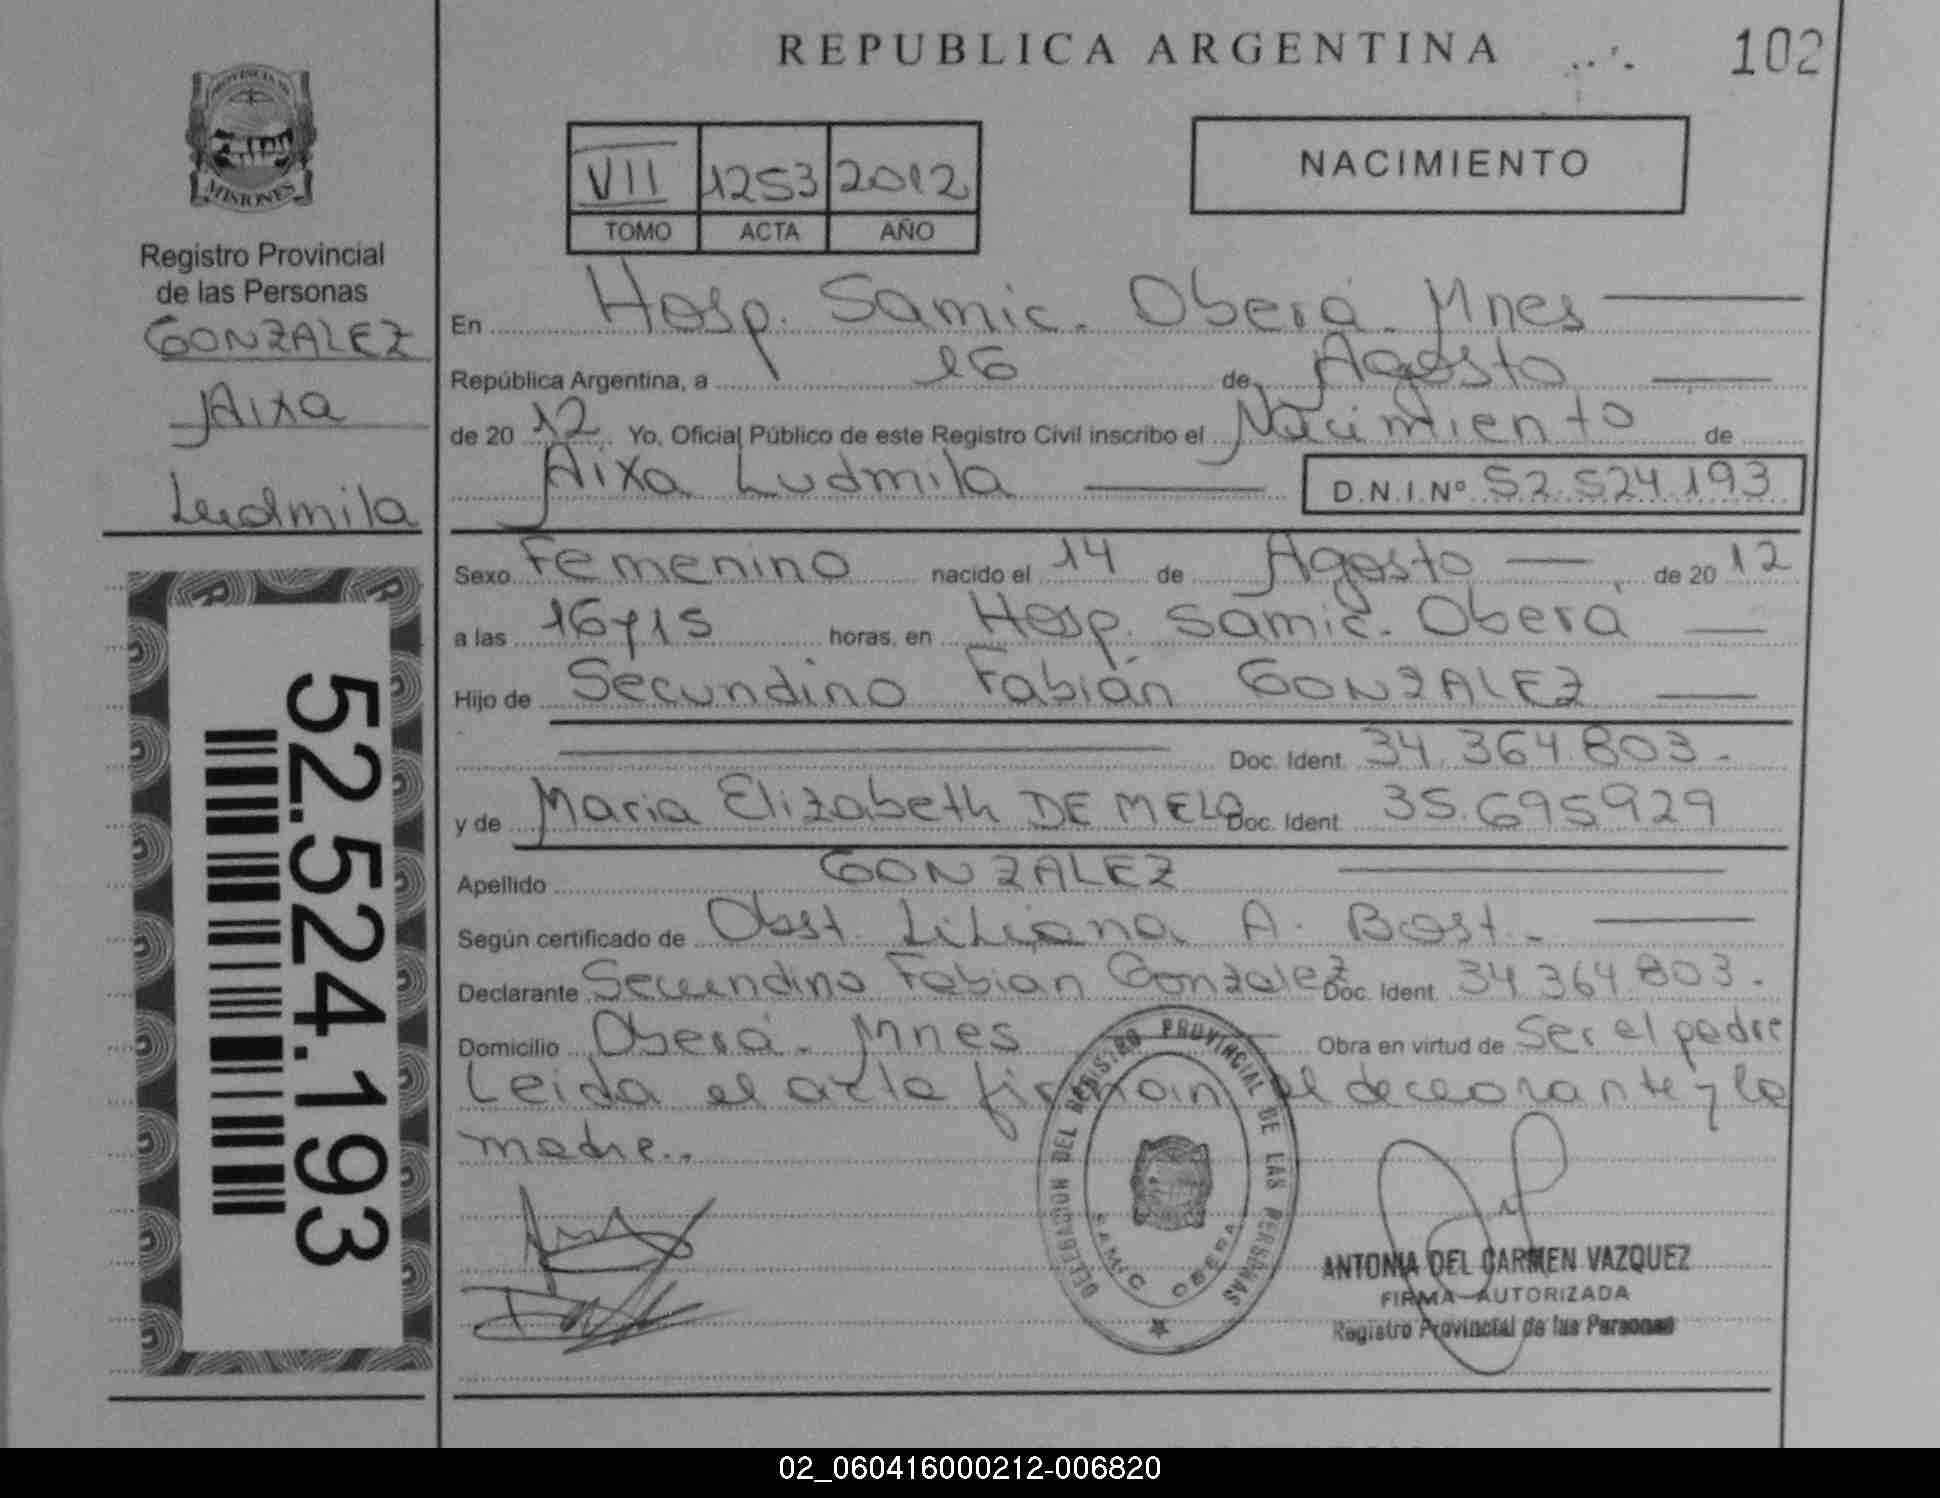 REPUBLICA ARGENTINA
102
PROVINCIA DE
MISIONES
Registro Provincial
de las Personas
GONZALEZ
Aixa
Ludmila
52.524.193
VII 1253 2012
TOMO ACTA AÑO
NACIMIENTO
En Hosp. Samic. Oberá. Mnes
República Argentina, a 16 de Agosto
de 20 12 Yo, Oficial Público de este Registro Civil inscribo el Nacimiento de
Aixa Ludmila D.N.I.Nº 52.524.193
Sexo Femenino nacido el 14 de Agosto de 20 12
a las 16 y 15 horas, en Hosp. Samic. Oberá
Hijo de Secundino Fabián GONZALEZ
Doc. Ident. 34.364.803.-
y de Maria Elizabeth DE MELO Doc. Ident. 35.695929
Apellido GONZALEZ
Según certificado de Obst. Liliana A. Bast.-
Declarante Secundino Fabian Gonzalez Doc. Ident. 34.364.803.
Domicilio Oberá. Mnes Obra en virtud de Ser el padre
Leida el acta firman el declarante y la
madre..
DELEGACION DEL REGISTRO PROVINCIAL DE LAS PERSONAS
SAMIC OBERA
ANTONIA DEL CARMEN VAZQUEZ
FIRMA AUTORIZADA
Registro Provincial de las Personas
02_060416000212-006820